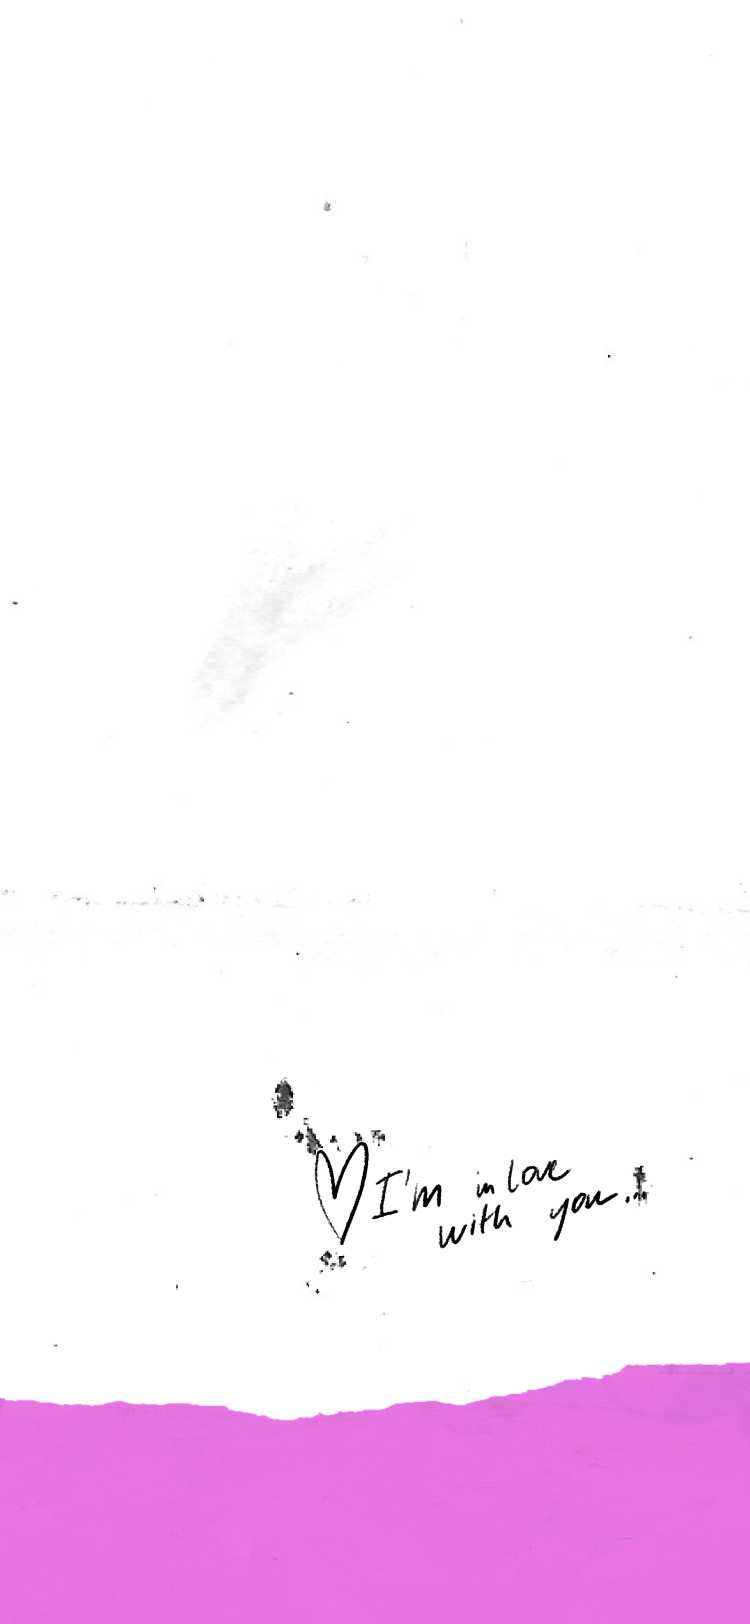 I'm in love
with you.